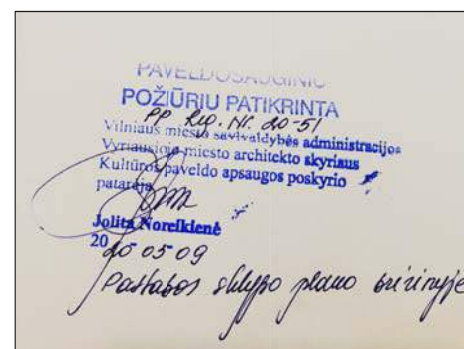 PAVELDOSAUGINIU
POŽIŪRIU PATIKRINTA
PP Reg. Nr. 20-51
Vilniaus miesto savivaldybės administracijos
Vyriausiojo miesto architekto skyriaus
Kultūros paveldo apsaugos poskyrio
patarėja
Jolita Noreikienė
2020-05-09
Pastabos sklypo plano